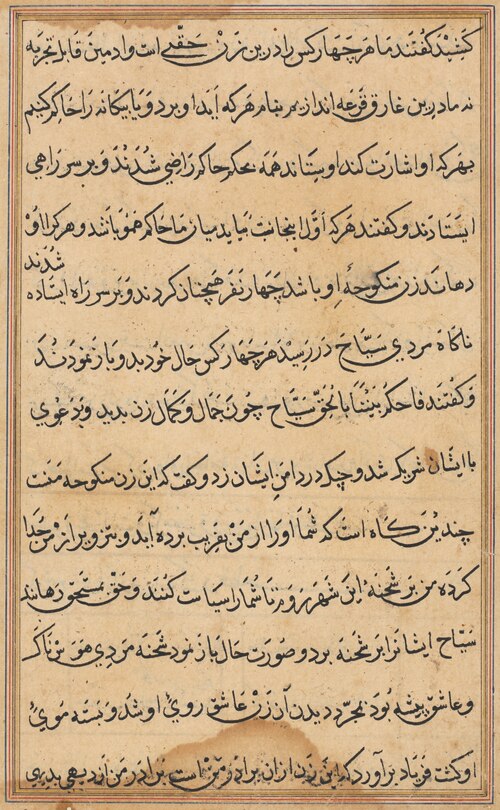 کشید گفتند ما هر چهار کس را درین زن حقّی است و ادمین قابل تجزیه
نه مادرین غارق قرعه اندازیم بنام هرکه آید او برد و یا بیکانه را حاکم کنیم
بهرکه او اشارت کند او ستاند همه بحکم حاکم راضی شدند و بر سر راهی
ایستادند و گفتند هرکه اوّل اینجانب بیاید میان ما حاکم همو باشد و هرکرا او
شدند
دهاند زن منکوحهٔ او باشد چهار نفر همچنان کردند و بر سر راه ایستاده
ناکاه مردی سیّاح در رسید هر چهار کس حال خود بدو باز نمودند
و گفتند فاحکم بیننا بالحقّ سیّاح چون جمال و کمال زن بدید و بدعوی
با ایشان شریک شد و چنک در دامن ایشان زد و گفت که این زن منکوحه منست
چندین کاه است که شما او را از من بفریب برده آید و بتزویر از من جدا
کرده من بر شحنهٔ این شهر روم تا شما را سیاست کنند و حق بمستحق رهانند
سیّاح ایشانرا بر شحنه برد و صورت حال باز نمود شحنه مردی هوّ بر ناک
و عاشق پیشه بود بمجرّد دیدن آن زن عاشق روی او شد و بسته موی
او گشت فریاد برآورد که این زن ازان برادر من است برادر من از دیهی بدیهی